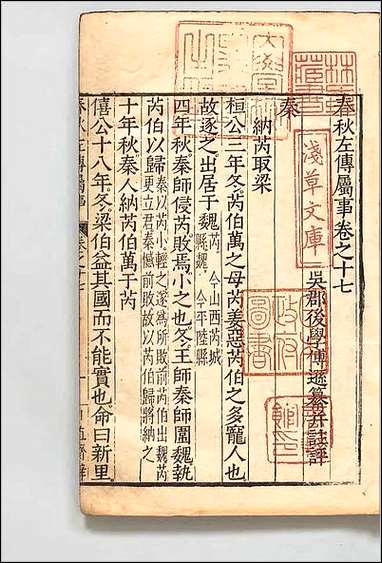 春秋左傳屬事卷之十七
吳郡後學傅遜纂并註評
秦
納芮取梁
桓公三年冬芮伯萬之母芮姜惡芮伯之多寵人也
故逐之出居于魏芮今山西芮城縣魏今平陸縣
四年秋秦師侵芮敗焉小之也冬王師秦師圍魏執
芮伯以歸秦以芮小輕之遂為所敗前芮伯出魏芮更立君秦憾前敗故以芮伯歸將納之
十年秋秦人納芮伯萬于芮
僖公十八年冬梁伯益其國而不能實也命曰新里
淺草文庫
林氏藏書
圖書